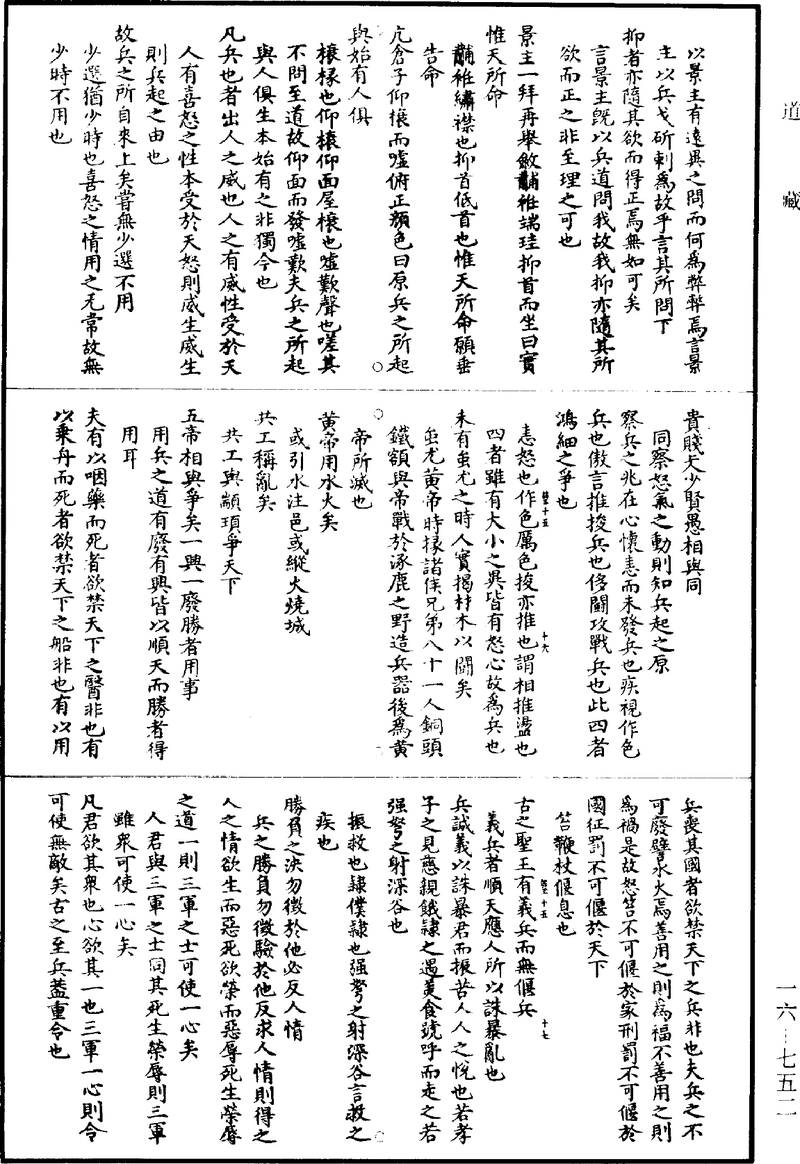 道藏
以景主有遠異之問而何為弊弊焉言景
主以兵戈斫刺為故乎言其所問下
抑者亦隨其欲而得正焉無如可矣
言景主既以兵道問我故我抑亦隨其所
欲而正之非至理之可也
景主一拜再舉斂黼袵端珪抑首而坐曰實
惟天所命
黼袵繡襟也抑首低首也惟天所命願垂
告命
亢倉子仰榱而噓俯正顏色曰原兵之所起
與始有人俱
榱椽也仰榱仰面屋榱也噓歎聲也嗟其
不問至道故仰面而發噓歎夫兵之所起
與人俱生本始有之非獨今也
凡兵也者出人之威也人之有威性受於天
人有喜怒之性本受於天怒則威生威生
則兵起之由也
故兵之所自來上矣嘗無少選不用
少選猶少時也喜怒之情用之无常故無
少時不用也
貴賤長少賢愚相與同
同察怒氣之動則知兵起之原
察兵之兆在心懷恚而未發兵也疾視作色
兵也傲言推捘兵也侈鬬攻戰兵也此四者
鴻細之爭也
恚怒也作色厲色捘亦推也謂相推盪也
四者雖有大小之異皆有怒心故為兵也
未有蚩尤之時人實揭材木以鬬矣
蚩尤黃帝時諸侯兄弟八十一人銅頭
鐵額與帝戰於涿鹿之野造兵器後為黃
帝所滅也
黃帝用水火矣
或引水注邑或縱火燒城
共工稱亂矣
共工與顓頊爭天下
五帝相與爭矣一興一廢勝者用事
用兵之道有廢有興皆以順天而勝者得
用耳
夫有以咽藥而死者欲禁天下之醫非也有
以乘舟而死者欲禁天下之船非也有以用
兵喪其國者欲禁天下之兵非也夫兵之不
可廢譬水火焉善用之則為福不善用之則
為禍是故怒笞不可偃於家刑罰不可偃於
國征罰不可偃於天下
笞鞭杖偃息也
古之聖王有義兵而無偃兵
義兵者順天應人所以誅暴亂也
兵誠義以誅暴君而振苦人人之悅也若孝
子之見慈親餓隸之遇美食號呼而走之若
强弩之射深谷也
振救也隸僕隸也强弩之射深谷言救之
疾也
勝負之決勿徵於他必反人情
兵之勝負勿徵驗於他反求人情則得之
人之情欲生而惡死欲榮而惡辱死生榮辱
之道一則三軍之士可使一心矣
人君與三軍之士同其死生榮辱則三軍
雖眾可使一心矣
凡君欲其眾也心欲其一也三軍一心則令
可使無敵矣古之至兵蓋重令也
一六—七五二